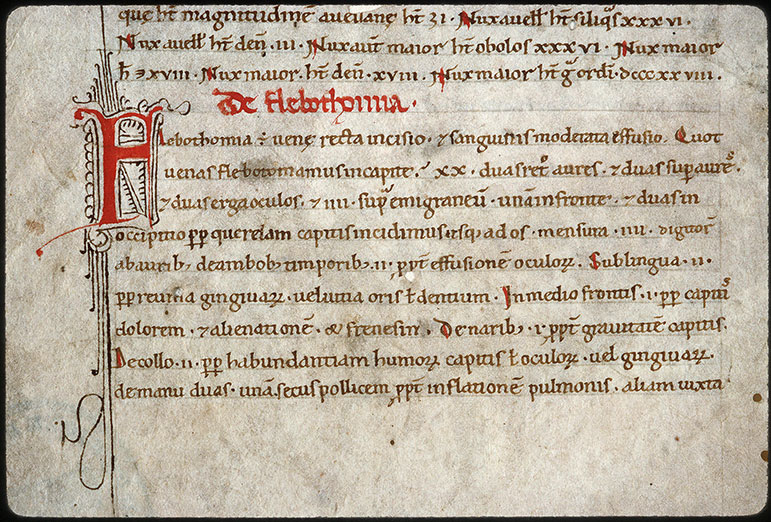 que ht̄ magnitudinē avevanę ht̄ ʒı. Nux avell̄ ht̄ siliq̊s xxx vı.
Nux avell̄ ht̄ den̄. ııı. Nux aut̄ maior ht̄ obolos xxx vı. Nux maior
h̄ ʒ xvııı. Nux maior. ht̄ den̄. xvııı. Nux maior ht̄ g̊ ordı̄. dccc xx vııı.
De flebothomia.
Flebothomia ē venę recta incisio. ⁊ sanguinis moderata effusio. Quot
uenas flebotomamus in capite. xx. duas ret̊ aures. ⁊ duas sup̄ aurē.
⁊ duas erga oculos. ⁊ ıııı. sup̄ emigraneū. unā in fronte. ⁊ duas in
occipitio ꝑp querelam capitis incidimus usq; ad os. mensura. ıııı. digitoꝝ
ab aurib; de ambob; timporib;. ıı. ꝓpt̄ effusionē oculoꝝ. Sub lingua. ıı.
ꝑp reuma gingiuaꝝ. vel uitia oris ł dentium. In medio frontis. ı. ꝑp capitis
dolorem. ⁊ alienationē. De narib;. ı. ꝓpt̄ grauitatē capitis.
De collo. ıı. ꝑp habundantiam humoꝝ capitis ł oculoꝝ. vel gingiuaꝝ.
de manu duas. unā. secus pollicem ꝓpt̄ inflationē pulmonis. aliam iuxta